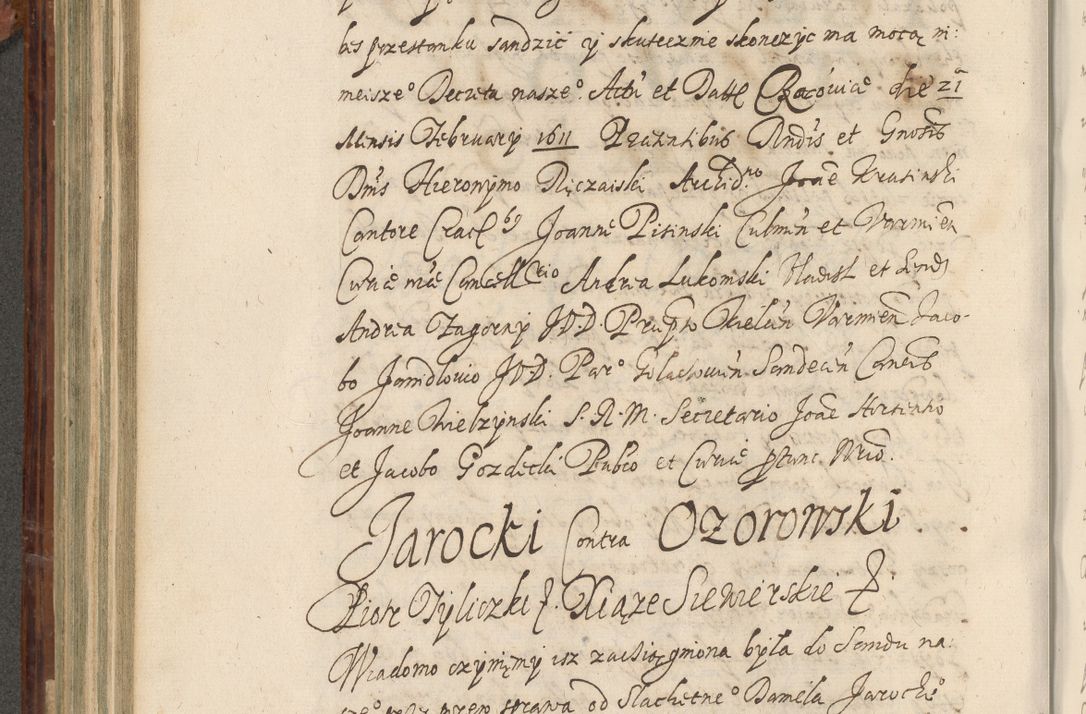 bes przestanku sandzić y skutecznie skonczyc ma mocą ni:
nieisze° Decretu nasze°. Actũ et Datt Cracoviae die 21
Mensis February 1611 Praesentibus Rndis et Gnosis
Dnis Hieronymo Ręczaiski Archid:no Joãe Krasinski
Cantore Cracł by Joanne Pisinski Culmeñ et Varmień
Curiae nrae Cancellrio Andrea Lukomski Vladisl et
Andrea Zagorny JVD. Praepto Kielceñ Varmień Jaco-
bo Janidlovio JVD. Par° Sandeceñ Caneis
Joanne Kielzynski S. R. M. Secretario Joãe
et Jacobo Gozdecki Publco et Curiae Nrio.
Jarocki Contra Ozorowski.
Piotr Tyliczki Xiąze Siewierskie
Wiadomo czyniemy isz zaciiągniona była do Sondu na:
sprawa od Slachetne° Daniela Jarocki°